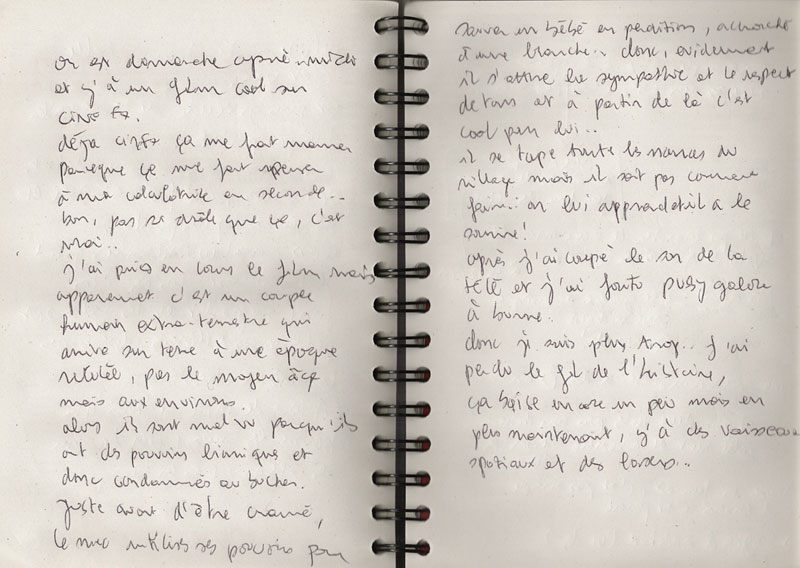 on est dimanche après-midi
et y'à un film cool sur
cinéfx.
déja cinéfx ça me fait marrer
parceque ça me fait penser
à ma calculatrice en seconde..
bon, pas si drôle que ça, c'est
vrai..
j'ai pris en cours le film mais
apparement c'est un couple
humain extra-terrestre qui
arrive sur terre à une époque
reculée, pas le moyen âge
mais aux environs.
alors ils sont mal vu parcqu'ils
ont des pouvoirs bioniques et
donc condamnés au bucher.
juste avant d'être cramé,
le mec utilise ses pouvoirs pour
sauver un bébé en perdition, accroché
à une branche.. donc, evidement
il s'attire la sympathie et le respect
de tous et à partir de là c'est
cool pour lui..
il se tape toute les nanas du
village mais il sait pas comment
faire.. on lui apprend
après j'ai coupé le son de la
télé et j'ai foutu pussy galore
à burne.
donc je suis plus trop.. j'ai
perdu le fil de l'histoire,
ça baise encore un peu mais en
plus maintenant, y'à des vaisseaux
spatiaux et des lasers..